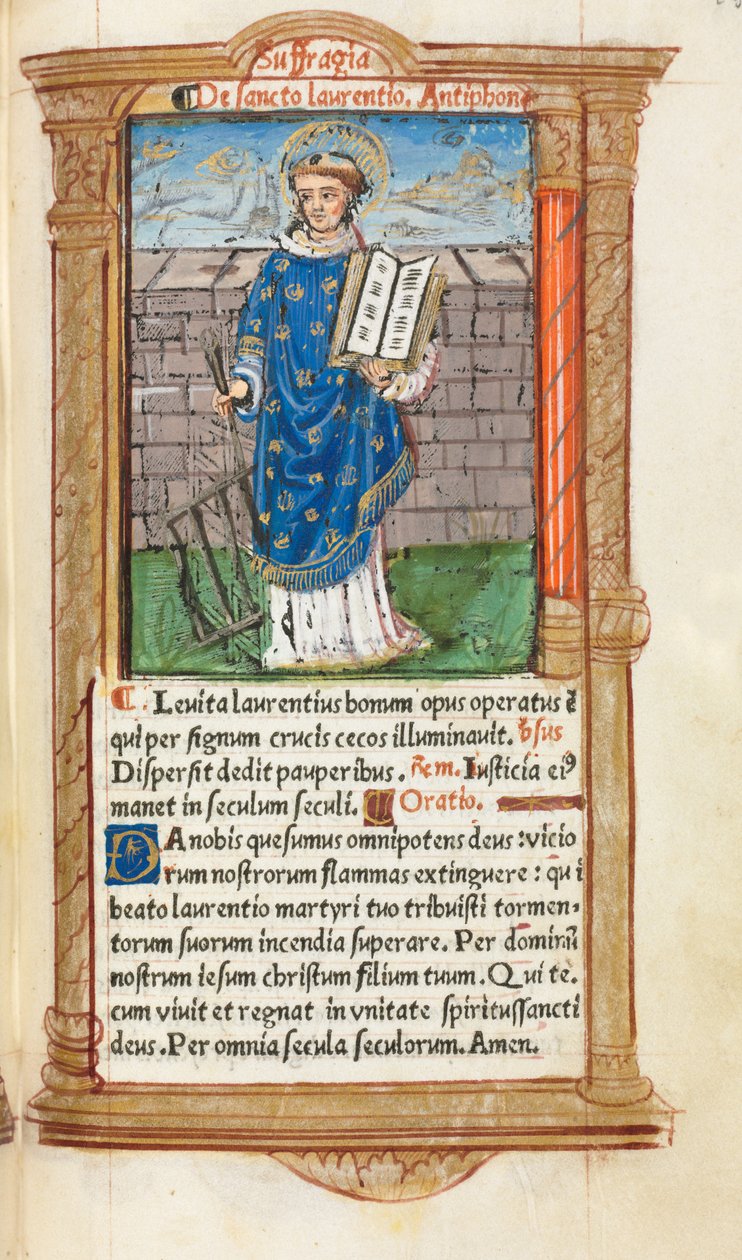 Suffragia
De sancto laurentio. Antiphona
Leuita laurentius bonum opus operatus ē
qui per signum crucis cecos illuminauit. Vsus
Dispersit dedit pauperibus. Rem. Iusticia eiꝰ
manet in seculum seculi. Oratio.
DA nobis quesumus omnipotens deus: vicio
rum nostrorum flammas extinguere: qui
beato laurentio martyri tuo tribuisti tormen-
torum suorum incendia superare. Per dominū
nostrum iesum christum filium tuum. Qui te-
cum viuit et regnat in vnitate spiritussancti
deus. Per omnia secula seculorum. Amen.